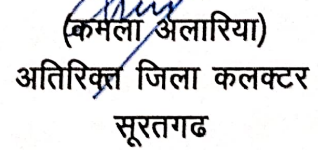 (कमला अलारिया)
अतिरिक्त जिला कलक्टर
सूरतगढ